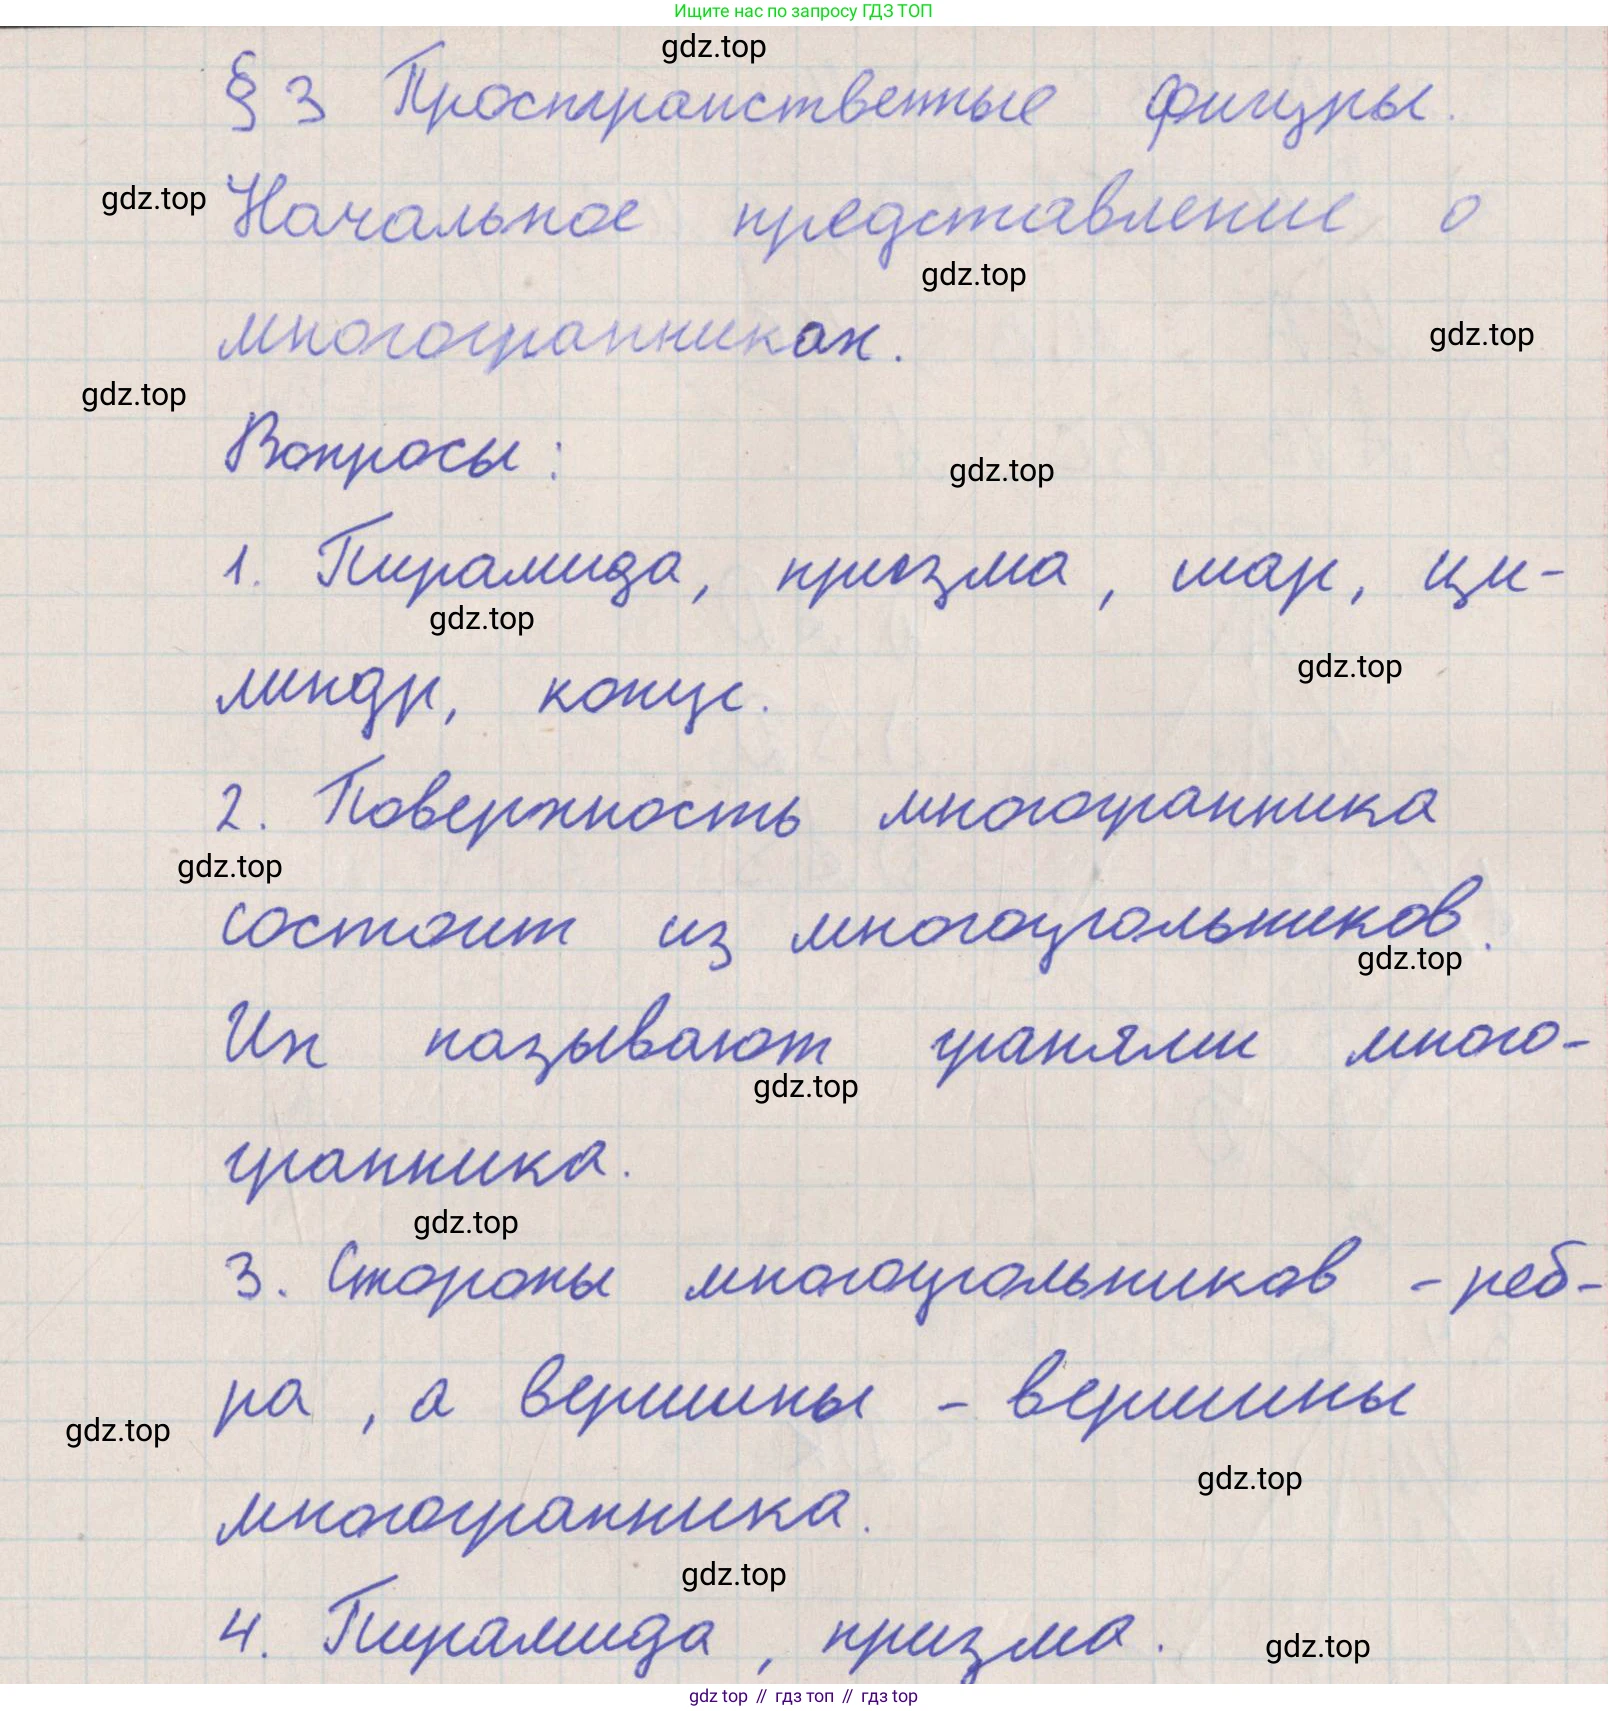 Ищите нас по запросу ГДЗ ТОП
gdz.top
§ 3 Пространственные фигуры.
gdz.top
Начальное представление о
gdz.top
многогранниках.
gdz.top
gdz.top
Вопросы:
gdz.top
1. Пирамида, призма, шар, ци-
gdz.top
gdz.top
линдр, конус.
2. Поверхность многогранника
gdz.top
состоит из многоугольников.
gdz.top
Их называют гранями много-
gdz.top
гранника.
gdz.top
3. Стороны многоугольников - реб-
ра, а вершины - вершины
gdz.top
gdz.top
многогранника.
gdz.top
4. Пирамида, призма.
gdz.top
gdz top // гдз топ // гдз top